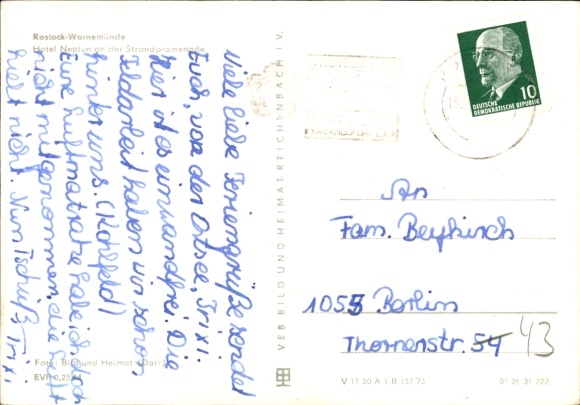 Rostock-Warnemünde
Hotel Neptun an der Strandpromenade
Viele liebe Feriengrüße sendet
Euch, von der Ostsee, Trixi.
Hier ist es einwandfrei. Die
Feldarbeit haben wir schon
hinter uns. (Kohlfeld)
Eure Luftmatratze habe ich doch
nicht mitgenommen, die Luft
hielt nicht. Nun Tschüß Trixi
Foto: Bild und Heimat (Darr)
EVP 0,25
VEB BILD UND HEIMAT REICHENBACH I. V.
10
DEUTSCHE
DEMOKRATISCHE REPUBLIK
An
Fam. Beykirch
1055 Berlin
Thornerstr. 54 43
V 11 50 A 1 B 157/73
01 01 31 222